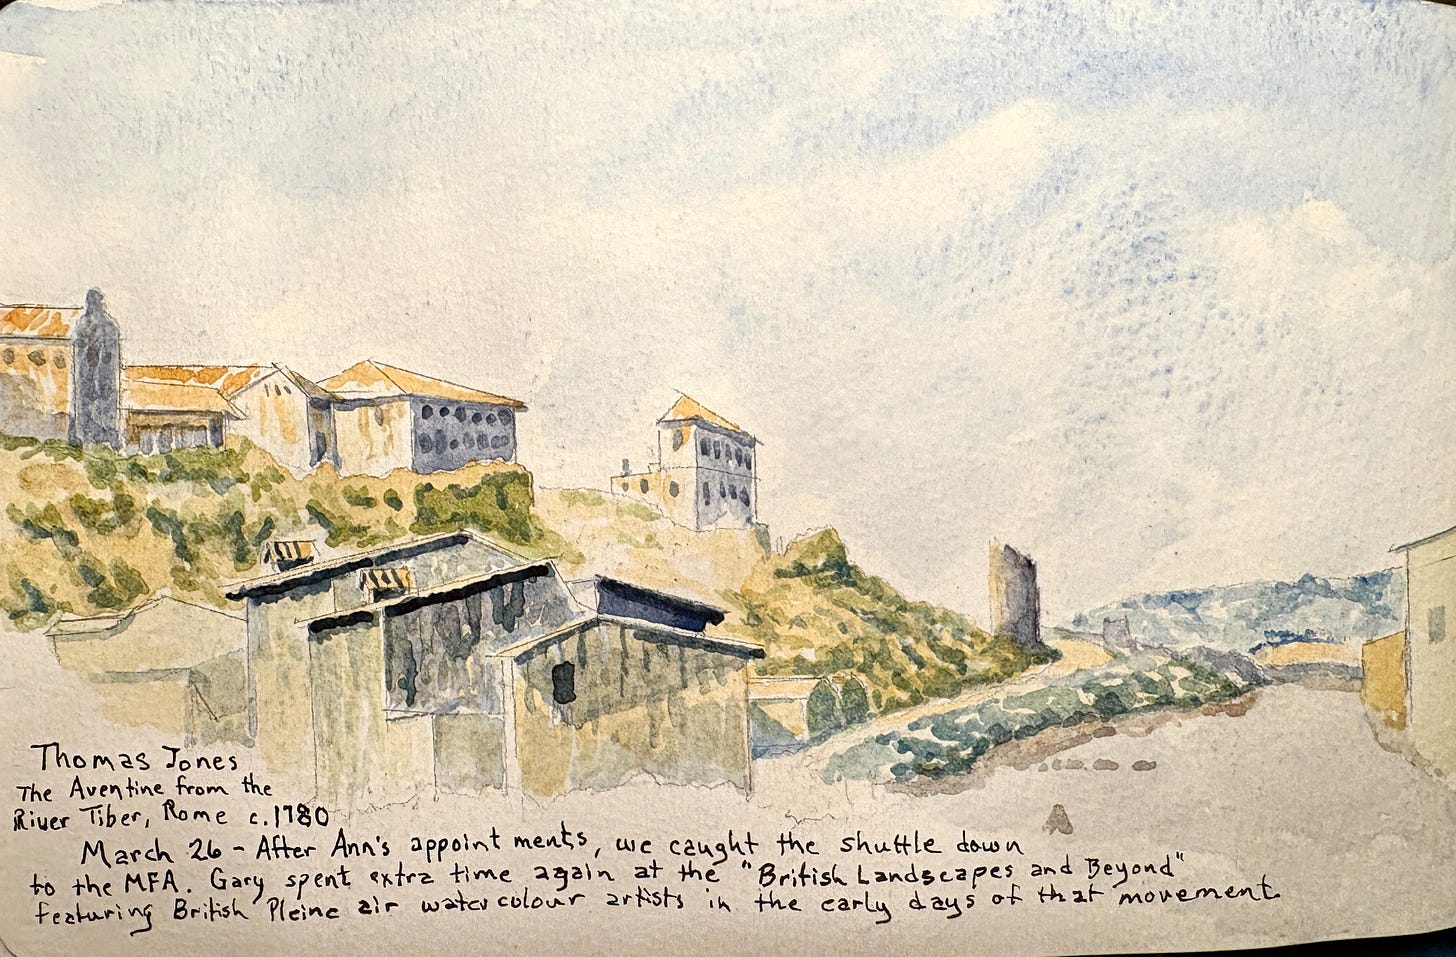 Thomas Jones
The Aventine from the
River Tiber, Rome c.1780
March 26 - After Ann's appointments, we caught the shuttle down
to the MFA. Gary spent extra time again at the "British Landscapes and Beyond"
featuring British Pleine air watercolour artists in the early days of that movement.